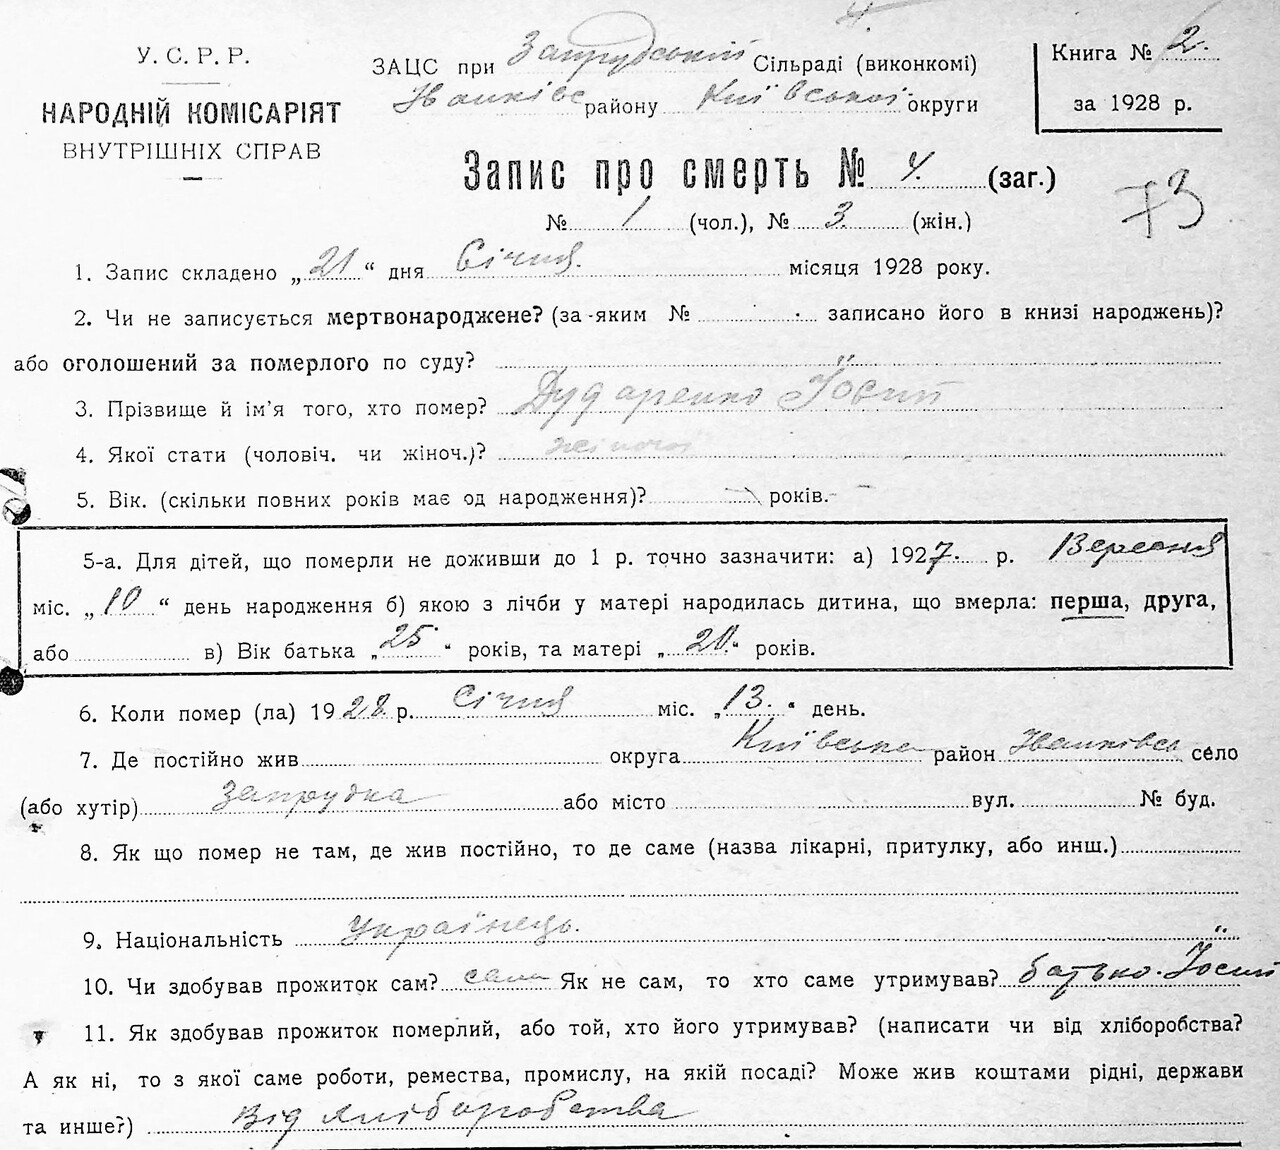 У. С. Р. Р.
НАРОДНІЙ КОМІСАРІЯТ
ВНУТРІШНІХ СПРАВ
ЗАЦС при Запрудській Сільраді (виконкомі)
Іванківс району Київської округи
Книга № 2.
за 1928 р.
Запис про смерть № 4. (заг.)
№ 1 (чол.), № 3 (жін.)
73
1. Запис складено „21“ дня Січня. місяця 1928 року.
2. Чи не записується мертвонароджене? (за-яким № записано його в книзі народжень)?
або оголошений за померлого по суду?
3. Прізвище й ім'я того, хто помер? Дударенко Йосип
4. Якої стати (чоловіч. чи жіноч.)? жіночої
5. Вік. (скільки повних років має од народження)? років.
5-а. Для дітей, що померли не доживши до 1 р. точно зазначити: а) 1927 р. Вересня
міс. „10“ день народження б) якою з лічби у матері народилась дитина, що вмерла: перша, друга,
або в) Вік батька „25“ років, та матері „20“ років.
6. Коли помер (ла) 1928 р. Січня міс. „13.“ день.
7. Де постійно жив округа Київська район Іванківсь село
(або хутір) Запрудка або місто вул. № буд.
8. Як що помер не там, де жив постійно, то де саме (назва лікарні, притулку, або инш.)
9. Національність Українець.
10. Чи здобував прожиток сам? Як не сам, то хто саме утримував? батько. Йосип
11. Як здобував прожиток померлий, або той, хто його утримував? (написати чи від хліборобства?
А як ні, то з якої саме роботи, ремества, промислу, на якій посаді? Може жив коштами рідні, держави
та инше?) Від хліборобства